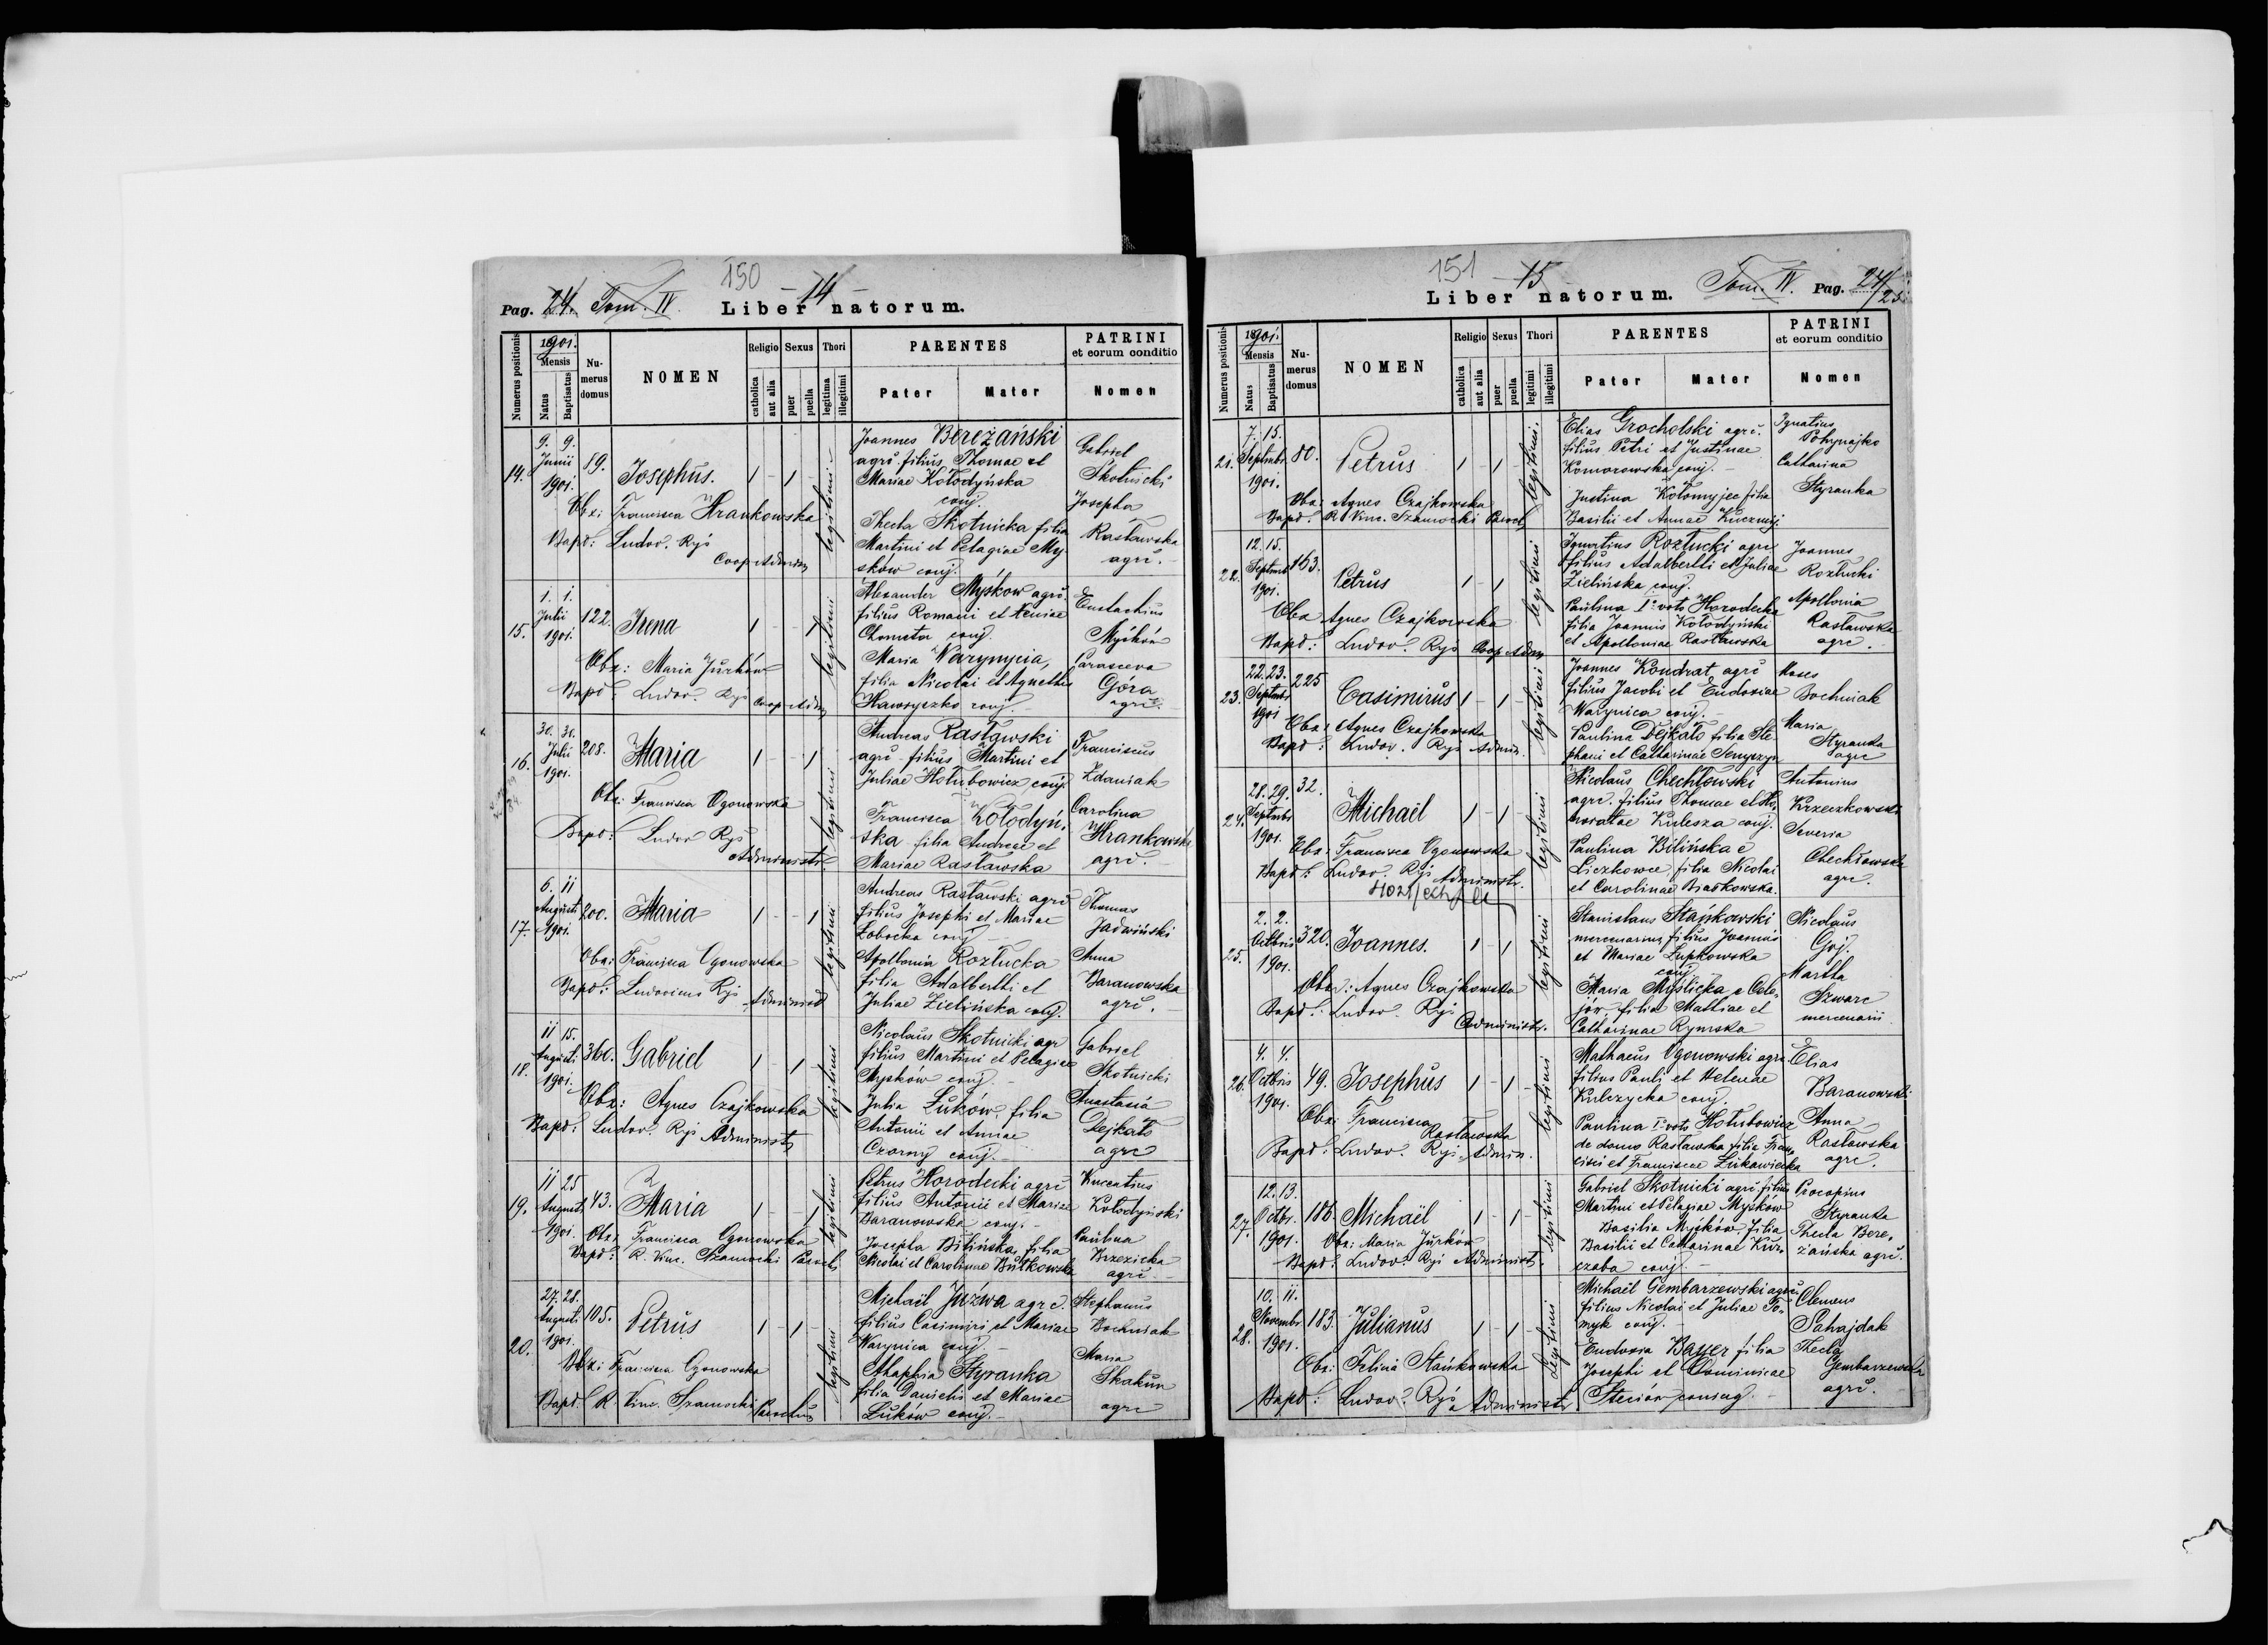 150
- 14 -
Pag. 24. Tom. IV. Liber natorum.
Numerus positionis
1901.
Mensis
Natus
Baptisatus
Numerus domus
NOMEN
Religio
catholica
aut alia
Sexus
puer
puella
Thori
legitima
illegitimi
PARENTES
Pater
Mater
PATRINI
et eorum conditio
Nomen
14.
9. 9.
Junii
1901.
89.
Josephus.
1 - 1 -
legitimi
Obx: Francisca Hrankowska
Bapt: Ludov. Ryś
Coop Admin
Joannes Bereżański
agric. filius Thomae et
Mariae Kołodyńska
conj.
Thecla Skotnicka filia
Martini et Pelagiae My
sków conj.
Gabriel
Skotnicki
Josepha
Rasławska
agric.
15.
1. 1.
Julii
1901.
122.
Irena
1 - - 1
legitimi
Obx: Maria Jurków
Bapt: Ludov. Ryś Coop Adm
Alexander Myśkow agric.
filius Romani et Xeniae
conj.
Maria Warynycia,
filia Nicolai et Agnethis
Hawryszko conj.
Eustachius
Myśków
Parasceva
Góra
agric.
16.
30. 30.
Julii
1901.
208.
Maria
1 - - 1
legitimi
Obx: Francisca Ogonowska
Bapt: Ludov Ryś
Administr.
Andreas Rasławski
agric filius Martini et
Juliae Hołubowicz conj.
Francisca Kołodyń-
ska filia Andreae et
Mariae Rasławska
Franciscus
Zdaniak
Carolina
Hrankowska
agric.
17.
6. 11
Augusti
1901.
200.
Maria
1 - - 1
legitimi
Obx: Francisca Ogonowska
Bapt: Ludovicus Ryś Administ
Andreas Rasławski agric
filius Josephi et Mariae
Łobocka conj
Apollonia Rozłucka
filia Adalberthi et
Juliae Zielińska conj.
Thomas
Jadwiński
Anna
Baranowska
agric.
18.
11 15.
Augusti
1901.
360.
Gabriel
1 - 1
legitimi
Obx: Agnes Czajkowska
Bapt: Ludov. Ryś Administ
Nicolaus Skotnicki agr
filius Martini et Pelagiae
Mysków conj.
Julia Łuków, filia
Antonii et Annae
Czorny conj.
Gabriel
Skotnicki
Anastasia
Dejkało
agric
19.
11 25
Augusti
1901.
43.
Maria
1 - - 1
legitimi
Obx: Francisca Ogonowska
Bapt: R. Vinc. Szamocki Paroch
Petrus Horodecki agric
filius Antonii et Mariae
Baranowska conj.
Josepha Bilińska, filia
Nicolai et Carolinae Butkowska
Vincentius
Kołodyński
Paulina
Krzezicka
agric.
20.
27. 28.
Augusti
1901.
105.
Petrus
1 - 1 -
legitimi
Obx: Francisca Ogonowska
Bapt. R. Vinc. Szamocki Parochus
Michaël Juźwa agric.
filius Casimiri et Mariae
Warynica conj.
Ahaphia Styranka
filia Danielis et Mariae
Łuków conj.
Stephanus
Bochniak
Maria
Skakun
agric
151
- 15
Liber natorum. Tom. IV. Pag. 24/25.
Numerus positionis
1901.
Mensis
Natus
Baptisatus
Numerus domus
NOMEN
Religio
catholica
aut alia
Sexus
puer
puella
Thori
legitimi
illegitimi
PARENTES
Pater
Mater
PATRINI
et eorum conditio
Nomen
21.
7. 15.
Septmbr
1901.
80.
Petrus
1 - 1 -
legitimi.
Obx: Agnes Czajkowska
Bapt. R. Vinc. Szamocki Paroch
Elias Grocholski agric.
filius Petri et Justinae
Komorowska conj.
Justina Kołomyjec filia
Basilii et Annae Kuczmij
Ignatius
Catharina
Styranka
22.
12. 15.
Septmbr
1901.
163.
Petrus
1 - 1
legitimi
Obx Agnes Czajkowska
Bapt: Ludov. Ryś Coop Adm
Ignatius Rozłucki agric
filius Adalberthi et Juliae
Zielińska conj.
Paulina I° voto Horodecka
filia Joannis Kołodyński
et Apolloniae Rasławska
Joannes
Rozłucki
Apollonia
Rasławska
agric.
23.
22. 23.
Septmbr
1901
225
Casimirus
1 - 1 -
legitimi
Obx: Agnes Czajkowska
Bapt: Ludov. Ryś Admin.
Joannes Kondrat agric
filius Jacobi et Eudoxiae
Warynica conj.
Paulina Dejkało filia Ste
phani et Catharinae Senyszyn
Moses
Bochniak
Maria
Styranka
agric
24.
28. 29.
Septmbr
1901.
32.
Michaël
1 - 1
legitimi
Obx: Francisca Ogonowska
Bapt: Ludov. Ryś Administr.
Nicolaus Chechłowski
agric. filius Thomae et Ho-
noratae Kulesza conj.
Paulina Bilińska e
Liczkowce, filia Nicolai
et Carolinae Białkowska.
Antonius
Krzeczkowski
Severia
Chechłowska
agric.
25.
2. 2.
Octbris
1901.
320.
Joannes.
1 - 1
legitimi
Obx: Agnes Czajkowska
Bapt: Ludov. Ryś
Administr.
Stanislaus Stańkowski
mercenarius, filius Joannis
et Mariae Lupkowska
conj
Maria Myślicka e Cele-
jów, filia Mathiae et
Catharinae Rymska
Nicolaus
Goj.
Martha
Szwarc
mercenarii
26.
4. 4.
Octbris
1901.
49.
Josephus
1 - 1 -
legitimi
Obx: Francisca
Rasławska
Bapt: Ludov. Ryś Admin.
Mathaeus Ogonowski agric
filius Pauli et Helenae
Kulczycka conj.
Paulina I° voto Hołubowicz
de domo Rasławska filia Fran-
cisci et Franciscae Łukawiecka
Elias
Baranowski
Anna
Rasławska
agric.
27.
12. 13.
Octbr.
1901.
186.
Michaël
1 - 1 -
legitimi
Obx: Maria Jurków
Bapt: Ludov. Ryś Administ.
Gabriel Skotnicki agric filius
Martini et Pelagiae Myśków
Basilia Myśków, filia
Basilii et Catharinae Kur-
czaba conj.
Procopius
Styranka
Thecla Bere-
żańska agric.
28.
10. 11.
Novembr
1901.
183.
Julianus
1 - 1
Legitimi
Obx: Felina Stańkowska
Bapt: Ludov. Ryś Administr
Michaël Gembarzewski agric
filius Nicolai et Juliae To-
myk conj.
Eudoxia Bayer filia
Josephi et Dominicae
Steciów coniug.
Clemens
Sahajdak
Thecla
Gembarzewska
agric.